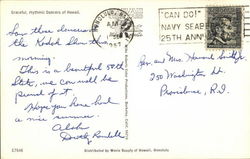 Graceful, rhythmic Dancers of Hawaii.
HONOLULU
AM
1967
"CAN DO!"
NAVY SEABE
25TH ANN
Saw these dancers
the Kodak Show this
morning.
This is a beautiful 50th
State, we can well be
proud of it.
Hope you have had
a nice summer.
Aloha
Dorothy
Mr. and Mrs. Howard Smith Jr.
250 Washington St.
Providence, R.I.
Distributed by Movie Supply of Hawaii, Honolulu